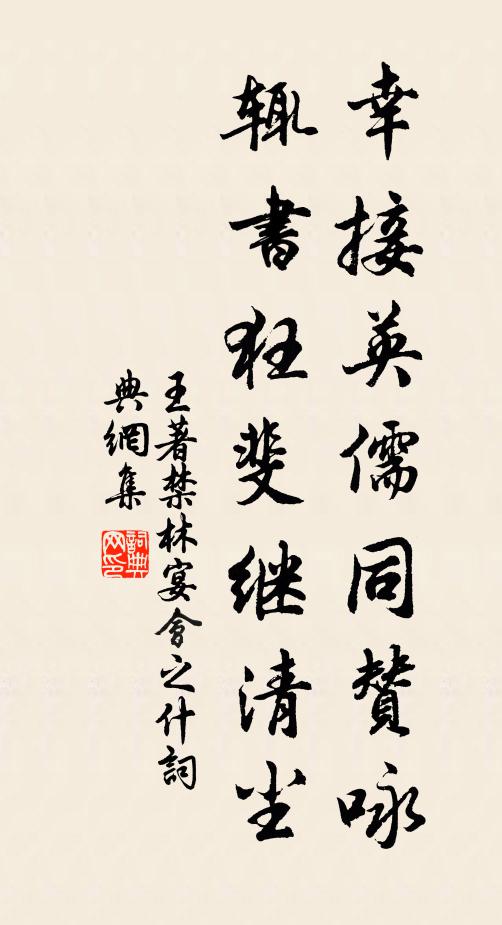 幸接英儒同赞咏
辄书狂斐继清尘
王著禁林宴会之什词
典网集
词典网印